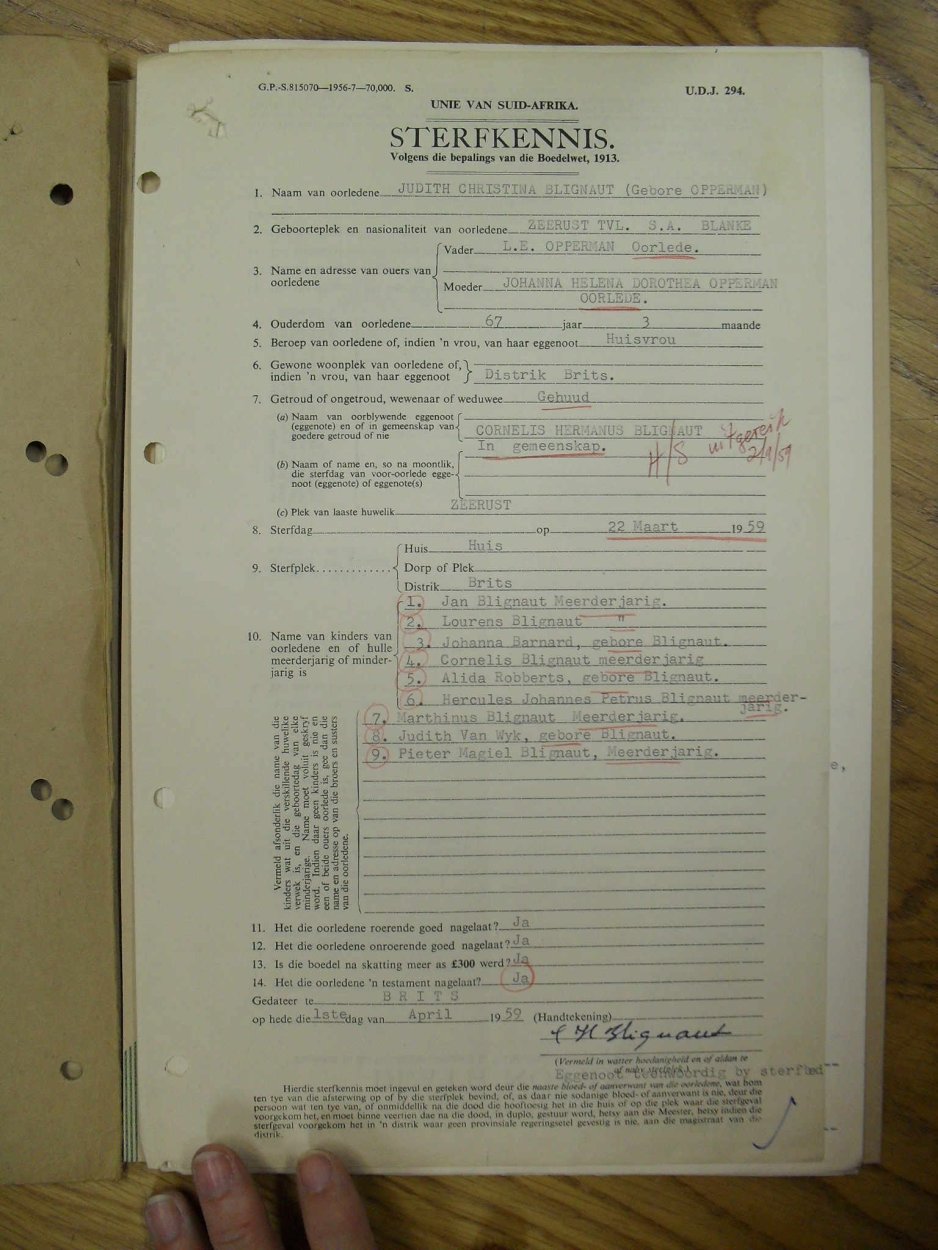 G.P.-S.815070—1956-7—70,000. S. U.D.J. 294.
UNIE VAN SUID-AFRIKA.
STERFKENNIS.
Volgens die bepalings van die Boedelwet, 1913.
1. Naam van oorledene JUDITH CHRISTINA BLIGNAUT (Gebore OPPERMAN)
2. Geboorteplek en nasionaliteit van oorledene ZEERUST TVL. S.A. BLANKE
3. Name en adresse van ouers van oorledene
Vader L.E. OPPERMAN Oorlede.
Moeder JOHANNA HELENA DOROTHEA OPPERMAN
OORLEDE.
4. Ouderdom van oorledene 67 jaar 3 maande
5. Beroep van oorledene of, indien 'n vrou, van haar eggenoot Huisvrou
6. Gewone woonplek van oorledene of,
indien 'n vrou, van haar eggenoot Distrik Brits.
7. Getroud of ongetroud, wewenaar of weduwee Gehuud
(a) Naam van oorblywende eggenoot
(eggenote) en of in gemeenskap van
goedere getroud of nie
CORNELIS HERMANUS BLIGNAUT
In gemeenskap.
H/S uitgereik
2/9/59
(b) Naam of name en, so na moontlik,
die sterfdag van voor-oorlede egge-
noot (eggenote) of eggenote(s)
(c) Plek van laaste huwelik ZEERUST
8. Sterfdag op 22 Maart 1959
9. Sterfplek
Huis Huis
Dorp of Plek
Distrik Brits
10. Name van kinders van
oorledene en of hulle
meerderjarig of minder-
jarig is
1. Jan Blignaut Meerderjarig.
2. Lourens Blignaut "
3. Johanna Barnard, gebore Blignaut.
4. Cornelis Blignaut meerderjarig
5. Alida Robberts, gebore Blignaut.
6. Hercules Johannes Petrus Blignaut meerder-
jarig.
7. Marthinus Blignaut Meerderjarig.
8. Judith Van Wyk, gebore Blignaut.
9. Pieter Magiel Blignaut, Meerderjarig.
Vermeld afsonderlik die name van die
kinders wat uit die verskillende huwelike
verwek is, en die geboortedag van elke
minderjarige. Name moet voluit geskryf
word. Indien daar geen kinders is nie en
een of beide ouers oorlede is, gee dan die
name en adresse op van die broers en susters
van die oorledene.
11. Het die oorledene roerende goed nagelaat? Ja
12. Het die oorledene onroerende goed nagelaat? Ja
13. Is die boedel na skatting meer as £300 werd? Ja
14. Het die oorledene 'n testament nagelaat? Ja
Gedateer te BRITS
op hede die 1ste dag van April 1959 (Handtekening)
C H Blignaut
(Vermeld in watter hoedanigheid en of aldan te
of naby sterfplek.)
Eggenoot teenwoordig by sterfbed
Hierdie sterfkennis moet ingevul en geteken word deur die naaste bloed- of aanverwant van die oorledene, wat hom
ten tye van die afsterwing op of by die sterfplek bevind, of, as daar nie sodanige bloed- of aanverwant is nie, deur die
persoon wat ten tye van, of onmiddellik na die dood die hooftoesig het in die huis of op die plek waar die sterfgeval
voorgekom het, en moet binne veertien dae na die dood, in duplo, gestuur word, hetsy aan die Meester, hetsy indien die
sterfgeval voorgekom het in 'n distrik waar geen provinsiale regeringsetel gevestig is nie, aan die magistraat van die
distrik.